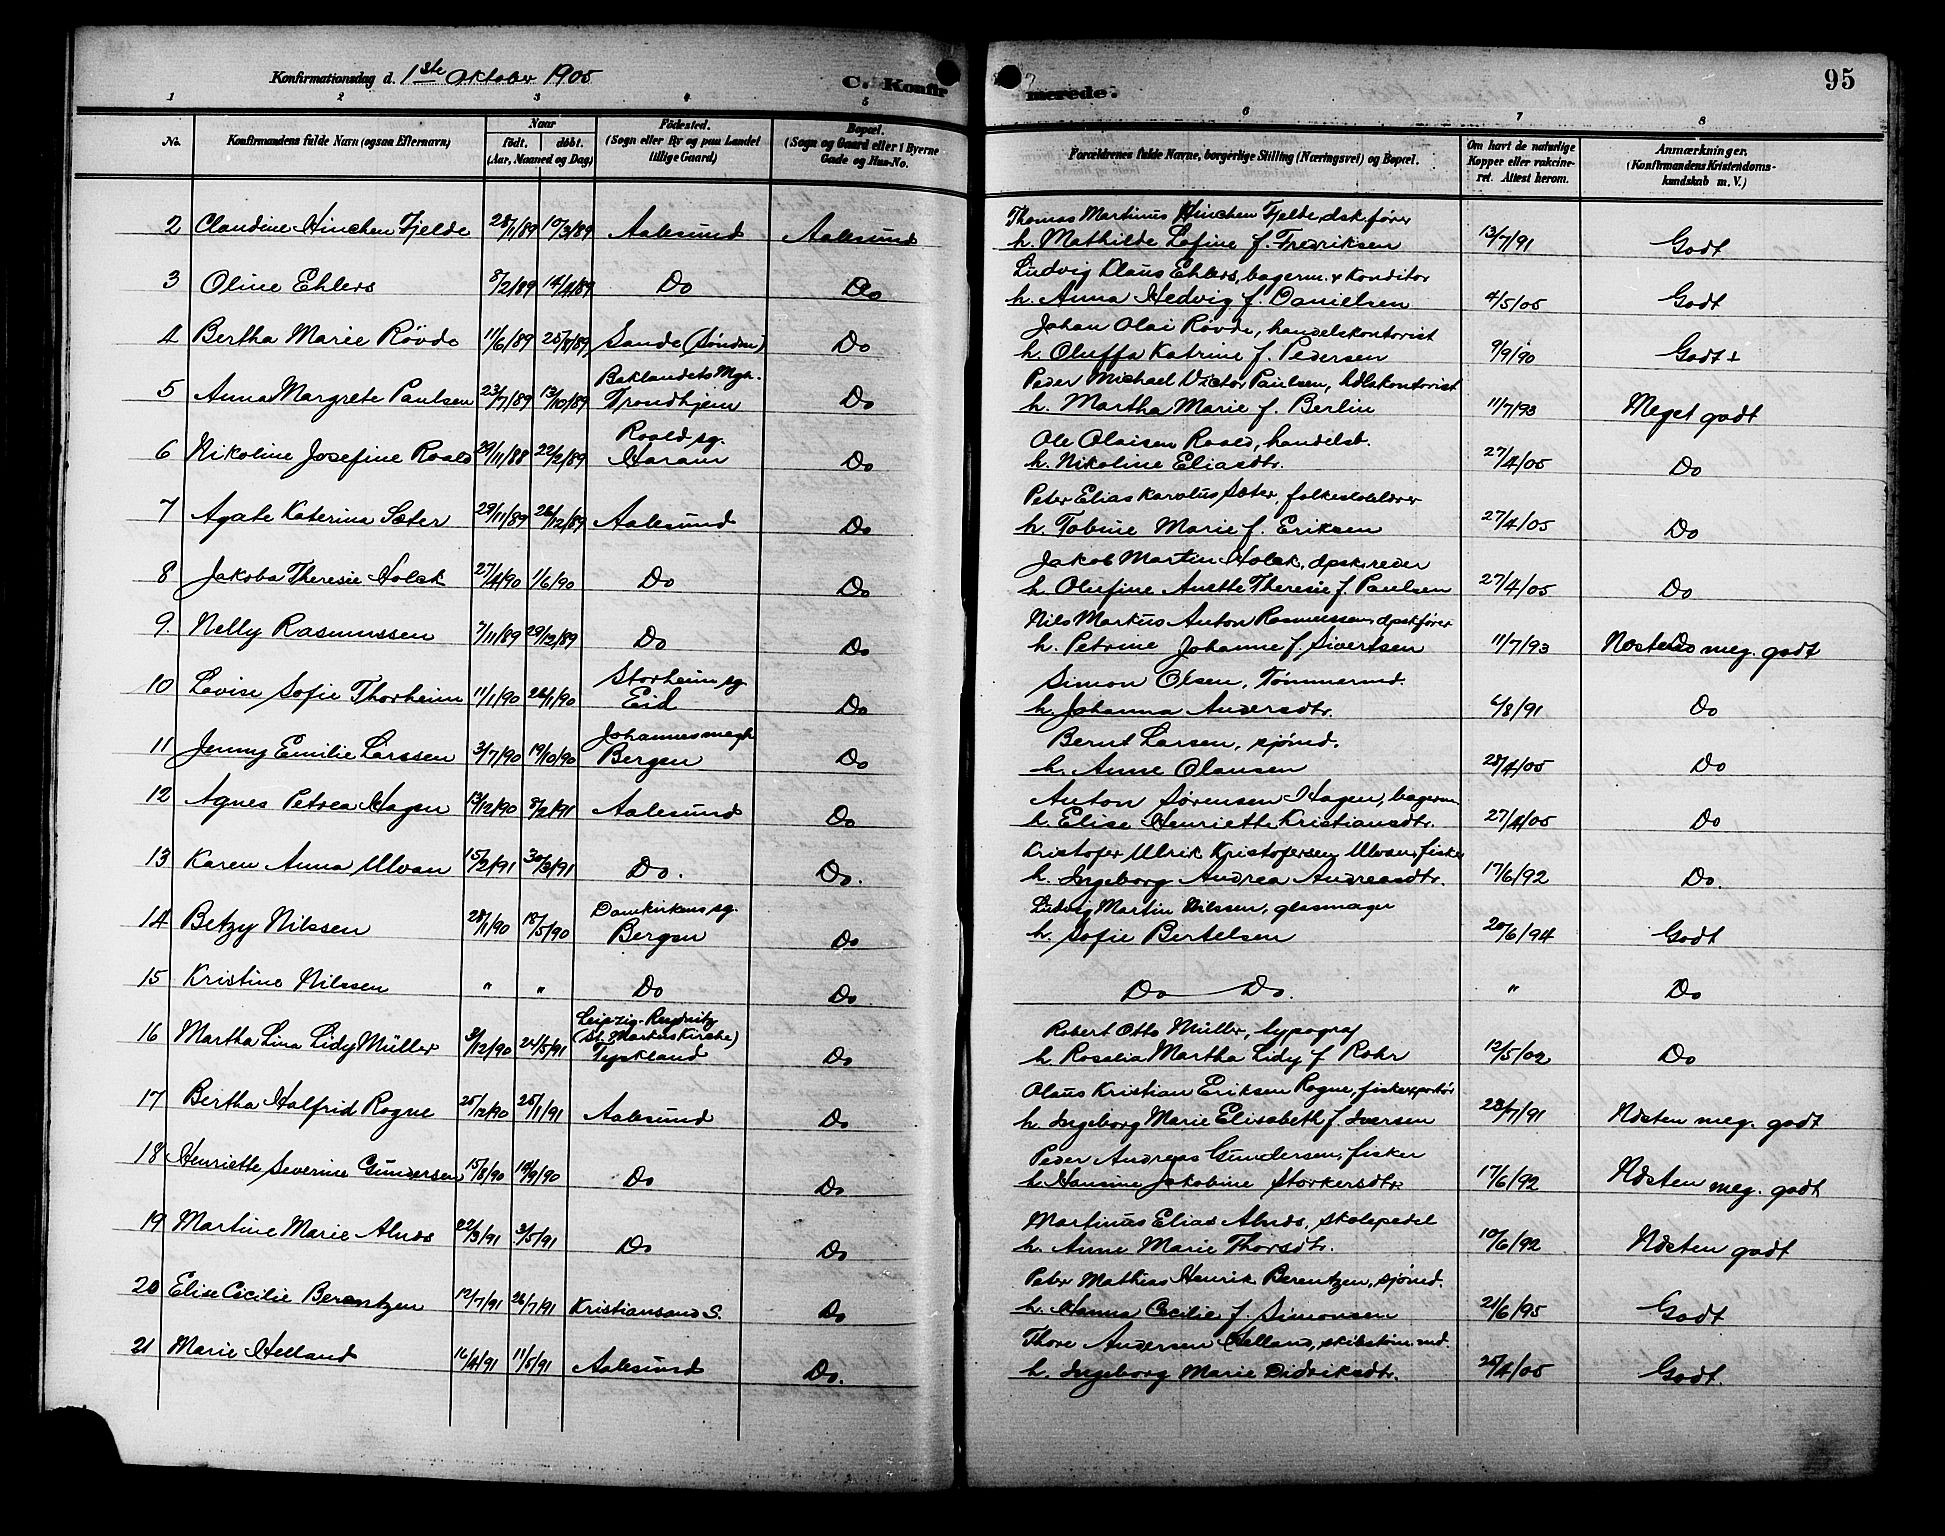 Konfirmationsdag d. 1ste Oktober 1905
C. Konfirmerede.
95
1 2 3 4 5 6 7 8
No.
Konfirmandens fulde Navn (ogsaa Efternavn)
Naar
født. døbt.
(Aar, Maaned og Dag)
Fødested.
(Sogn eller By og paa Landet tillige Gaard)
Bopæl.
(Sogn og Gaard eller i Byerne Gade og Hus-No.
Forældrenes fulde Navne, borgerlige Stilling (Næringsvei) og Bopæl.
Om havt de naturlige Kopper eller vakcineret. Attest herom.
Anmærkninger.
(Konfirmandens Kristendomskundskab m. V.)
2 Claudine Hinchen Fjelde 28/1/89 10/3/89 Aalesund Aalesund Thomas Martinus Hinchen Fjelde, dsk.fører
h. Mathilde Lofine f. Fredriksen 13/7/91 Godt
3 Oline Ehlers 8/2/89 14/4/89 Do Do Ludvig Klaus Ehlers, bagerm. & Konditor
h. Anna Hedvig f. Danielsen 4/5/05 Godt
4 Bertha Marie Røvde 11/6/89 25/8/89 Sande (Søndm) Do Johan Olai Røvde, handelskontorist
h. Oluffa Katrine f. Pedersen 9/9/90 Godt +
5 Anna Margrete Paulsen 23/7/89 13/10/89 Baklandets Mgh. Trondhjem Do Peder Michael Victor Paulsen, hdlskontorist
h. Martha Marie f. Berlin 11/7/93 Meget godt
6 Nikoline Josefine Roald 29/11/88 22/2/89 Roald sg. Haram Do Ole Olaisen Roald, handelsb.
h. Nikoline Eliasdtr. 27/4/05 Do
7 Agate Katerina Sæter 29/11/89 26/12/89 Aalesund Do Peter Elias Karolus Sæter, folkeskolelærer
h. Tobine Marie f. Eriksen 27/4/05 Do
8 Jakoba Theresie Holck 27/4/90 1/6/90 Do Do Jakob Martin Holck, dpsk.reder
h. Olufine Anette Theresie f. Paulsen 27/4/05 Do
9. Nelly Rasmussen 7/11/89 29/12/89 Do Do Nils Markus Anton Rasmussen, dpskfører
h. Petrine Johanne f. Sivertsen 11/7/93 Næsten meg. godt
10 Lovise Sofie Thorheim 11/1/90 26/1/90 Storheim sg. Eid Do Simon Olsen, Tømmermd.
h. Johanna Andersdtr. 6/8/91 Do
11 Jenny Emilie Larssen 3/7/90 19/10/90 Johannesmegh Bergen Do Bernt Larsen, sjømd.
h. Anne Olausen 28/4/05 Do
12 Agnes Petrea Hagen 13/12/90 8/2/91 Aalesund Do Anton Sørensen Hagen, bagerm
h. Elise Henriette Kristiansdtr. 27/4/05 Do
13 Karen Anna Ulvan 15/2/91 30/3/91 Do. Do. Kristofer Ulrik Kristofersen Ulvan, fisker
h. Ingeborg Andrea Andreasdtr. 17/6/92 Do.
14 Betzy Nilssen 28/1/90 18/5/90 Domkirkens sg. Bergen Do Ludvig Martin Nilssen, glasmager
h. Sofie Bertelsen 20/6/94 Godt
15 Kristine Nilssen " " Do Do Do Do. " Do
16 Martha Lina Lidy Müller 3/12/90 24/5/91 Leipzig-Reudnitz (St. Markus Kirche) Tyskland Do Robert Otto Müller, typograf
h. Rosalia Martha Lidy f. Rohr 12/5/02 Do
17 Bertha Halfrid Rogne 25/12/90 25/1/91 Aalesund Do Olaus Kristian Eriksen Rogne, fiskexportør
h. Ingeborg Marie Elisabeth f. Iversen 23/7/91 Næsten meg. godt
18 Henriette Severine Gundersen 15/8/90 14/9/90 Do Do Peder Andreas Gundersen, fisker
h. Hansine Jakobine Storkersdtr. 17/6/92 Næsten meg. godt
19 Martine Marie Alnæs 22/3/91 3/5/91 Do Do Martinus Elias Alnæs, skolepedel
h. Anne Marie Thorsdtr. 10/6/92 Næsten godt
20 Elise Cecilie Berentzen 12/7/91 26/7/91 Kristiansand S. Do Peter Mathias Henrik Berentzen, sjømd.
h. Hanna Cecilie f. Simonsen 21/6/95 Godt
21 Marie Helland 16/4/91 11/5/91 Aalesund Do. Thore Andersen Helland, skibstømmd.
h. Ingeborg Marie Didriksdtr. 25/4/05 Godt.